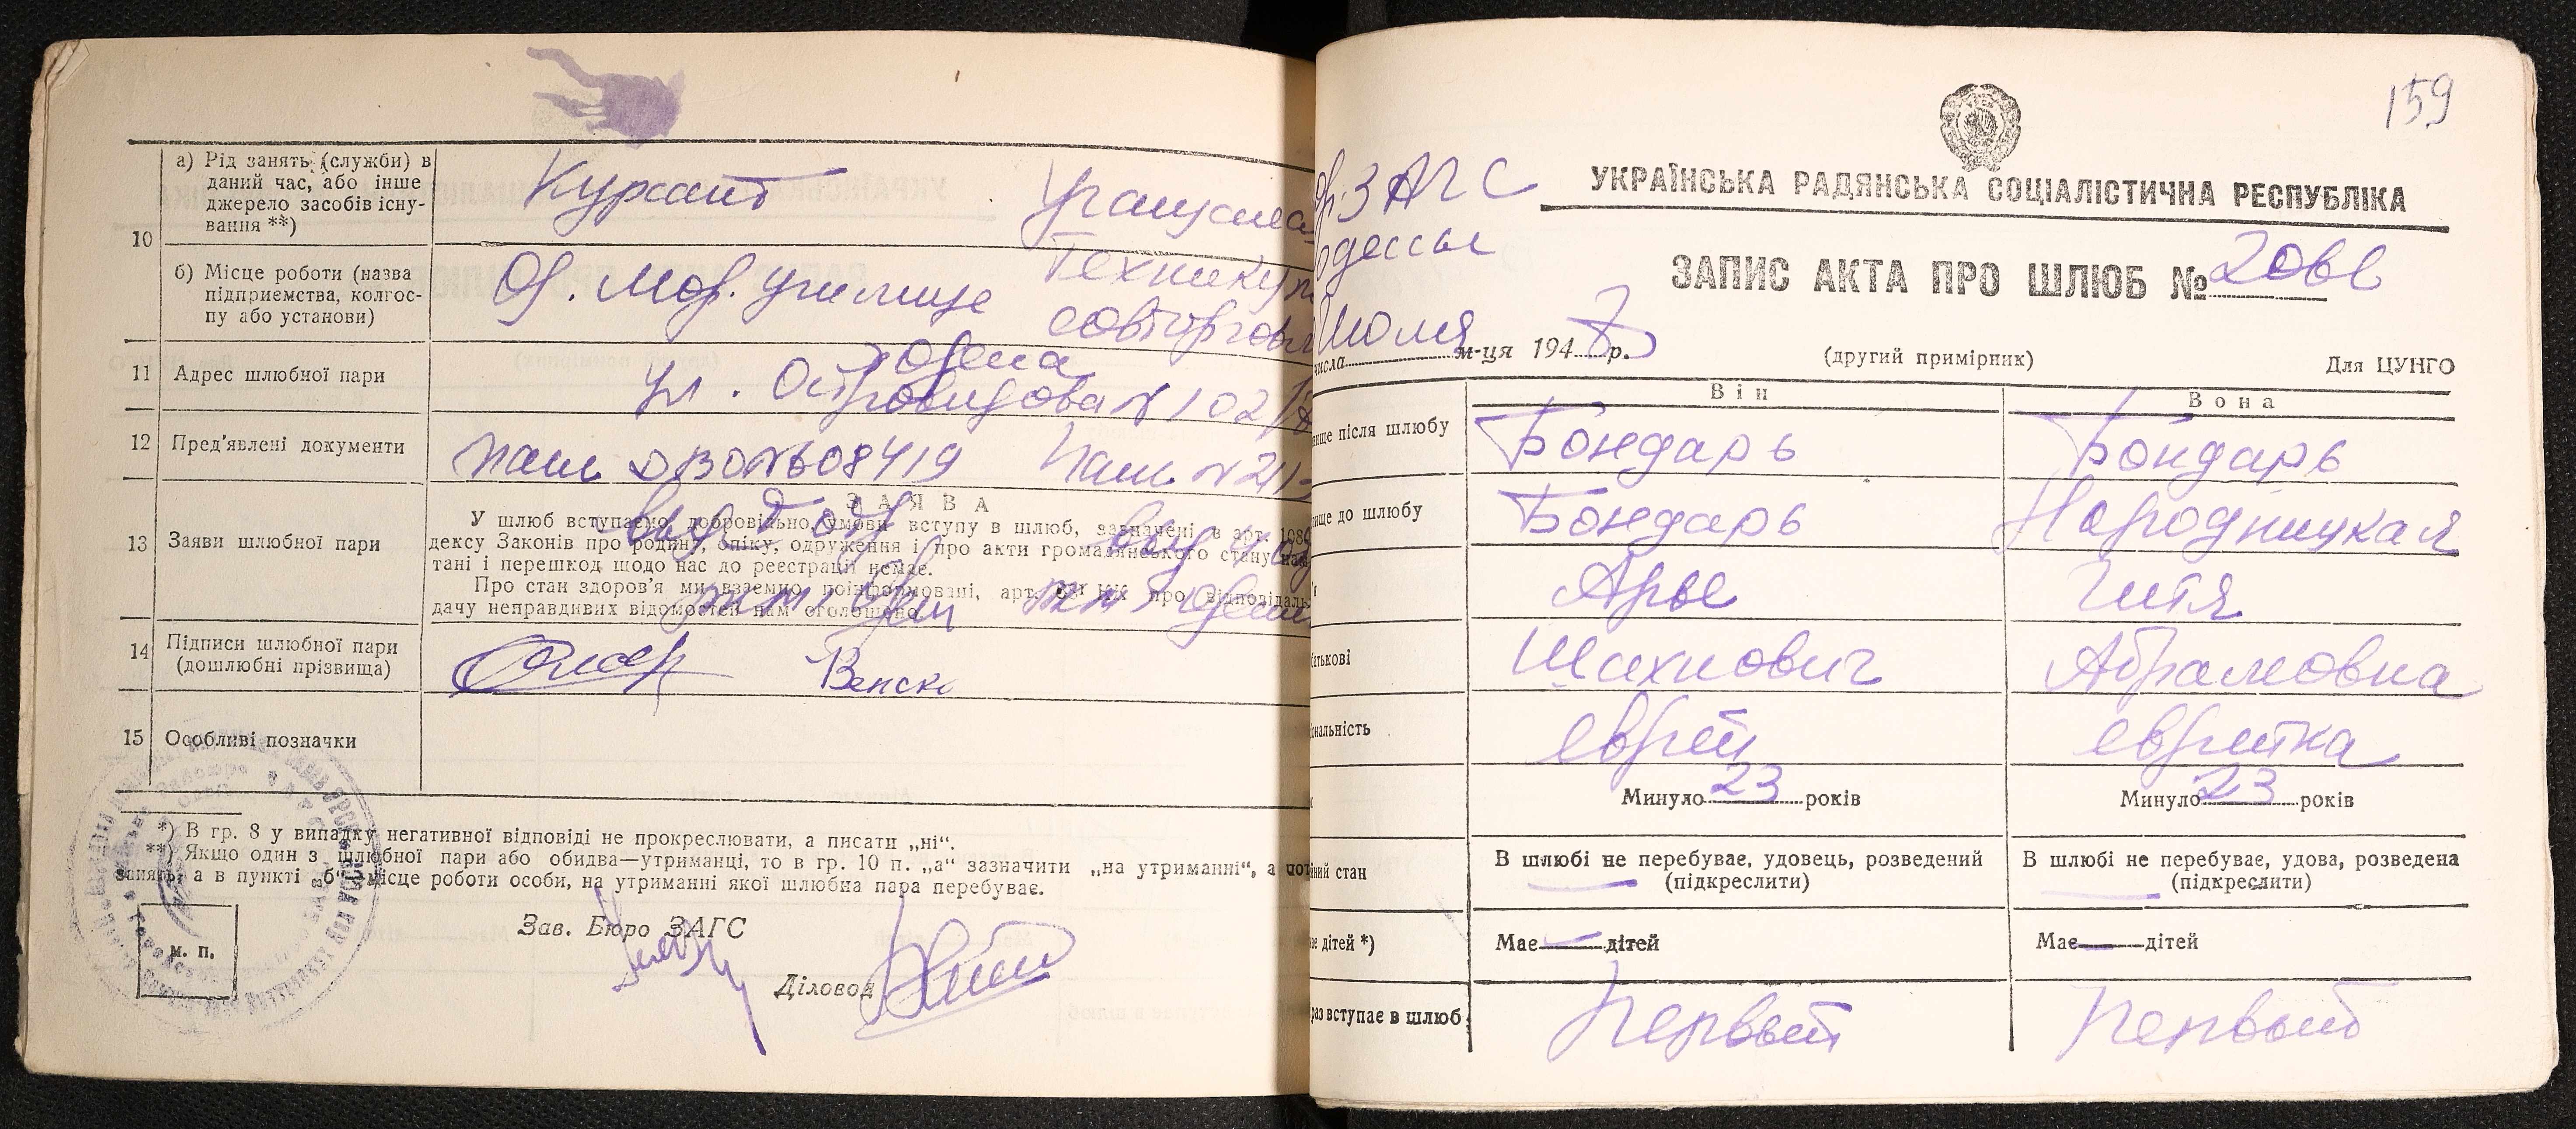 10
а) Рід занять (служби) в
даний час, або інше
джерело засобів існу-
вання **)
Курсант
Учащаяся
б) Місце роботи (назва
підприємства, колгос-
пу або установи)
Од. Мор. училище
Техникум
совторговли
11
Адрес шлюбної пари
Одесса
ул. Островидова № 102
12
Пред'явлені документи
13
Заяви шлюбної пари
ЗАЯВА
У шлюб вступаємо добровільно, умови вступу в шлюб, зазначені в арт. 108
дексу Законів про родину, опіку, одруження і про акти громадянського стану
тані і перешкод щодо нас до реєстрації немає.
Про стан здоров'я ми взаємно поінформовані, арт. про відповідаль
дачу неправдивих відомостей нам оголошено.
14
Підписи шлюбної пари
(дошлюбні прізвища)
15
Особливі позначки
*) В гр. 8 у випадку негативної відповіді не прокреслювати, а писати „ні“.
**) Якщо один з шлюбної пари або обидва—утриманці, то в гр. 10 п. „а“ зазначити „на утриманні“, а
занять, а в пункті „б“ місце роботи особи, на утриманні якої шлюбна пара перебуває.
м. п.
Зав. Бюро ЗАГС
Діловод
159
ЗАГС
Одессы
УКРАЇНСЬКА РАДЯНСЬКА СОЦІАЛІСТИЧНА РЕСПУБЛІКА
ЗАПИС АКТА ПРО ШЛЮБ №
числа Июля м-ця 194 р.
(другий примірник)
Для ЦУНГО
Він
Вона
вище після шлюбу
Бондарь
Бондарь
вище до шлюбу
Бондарь
Народницкая
Арье
Гитя
батькові
Шахнович
Абрамовна
ональність
еврей
еврейка
Минуло 23 років
Минуло 23 років
ний стан
В шлюбі не перебуває, удовець, розведений
(підкреслити)
В шлюбі не перебуває, удова, розведена
(підкреслити)
є дітей *)
Має — дітей
Має — дітей
раз вступає в шлюб
Первый
Первый